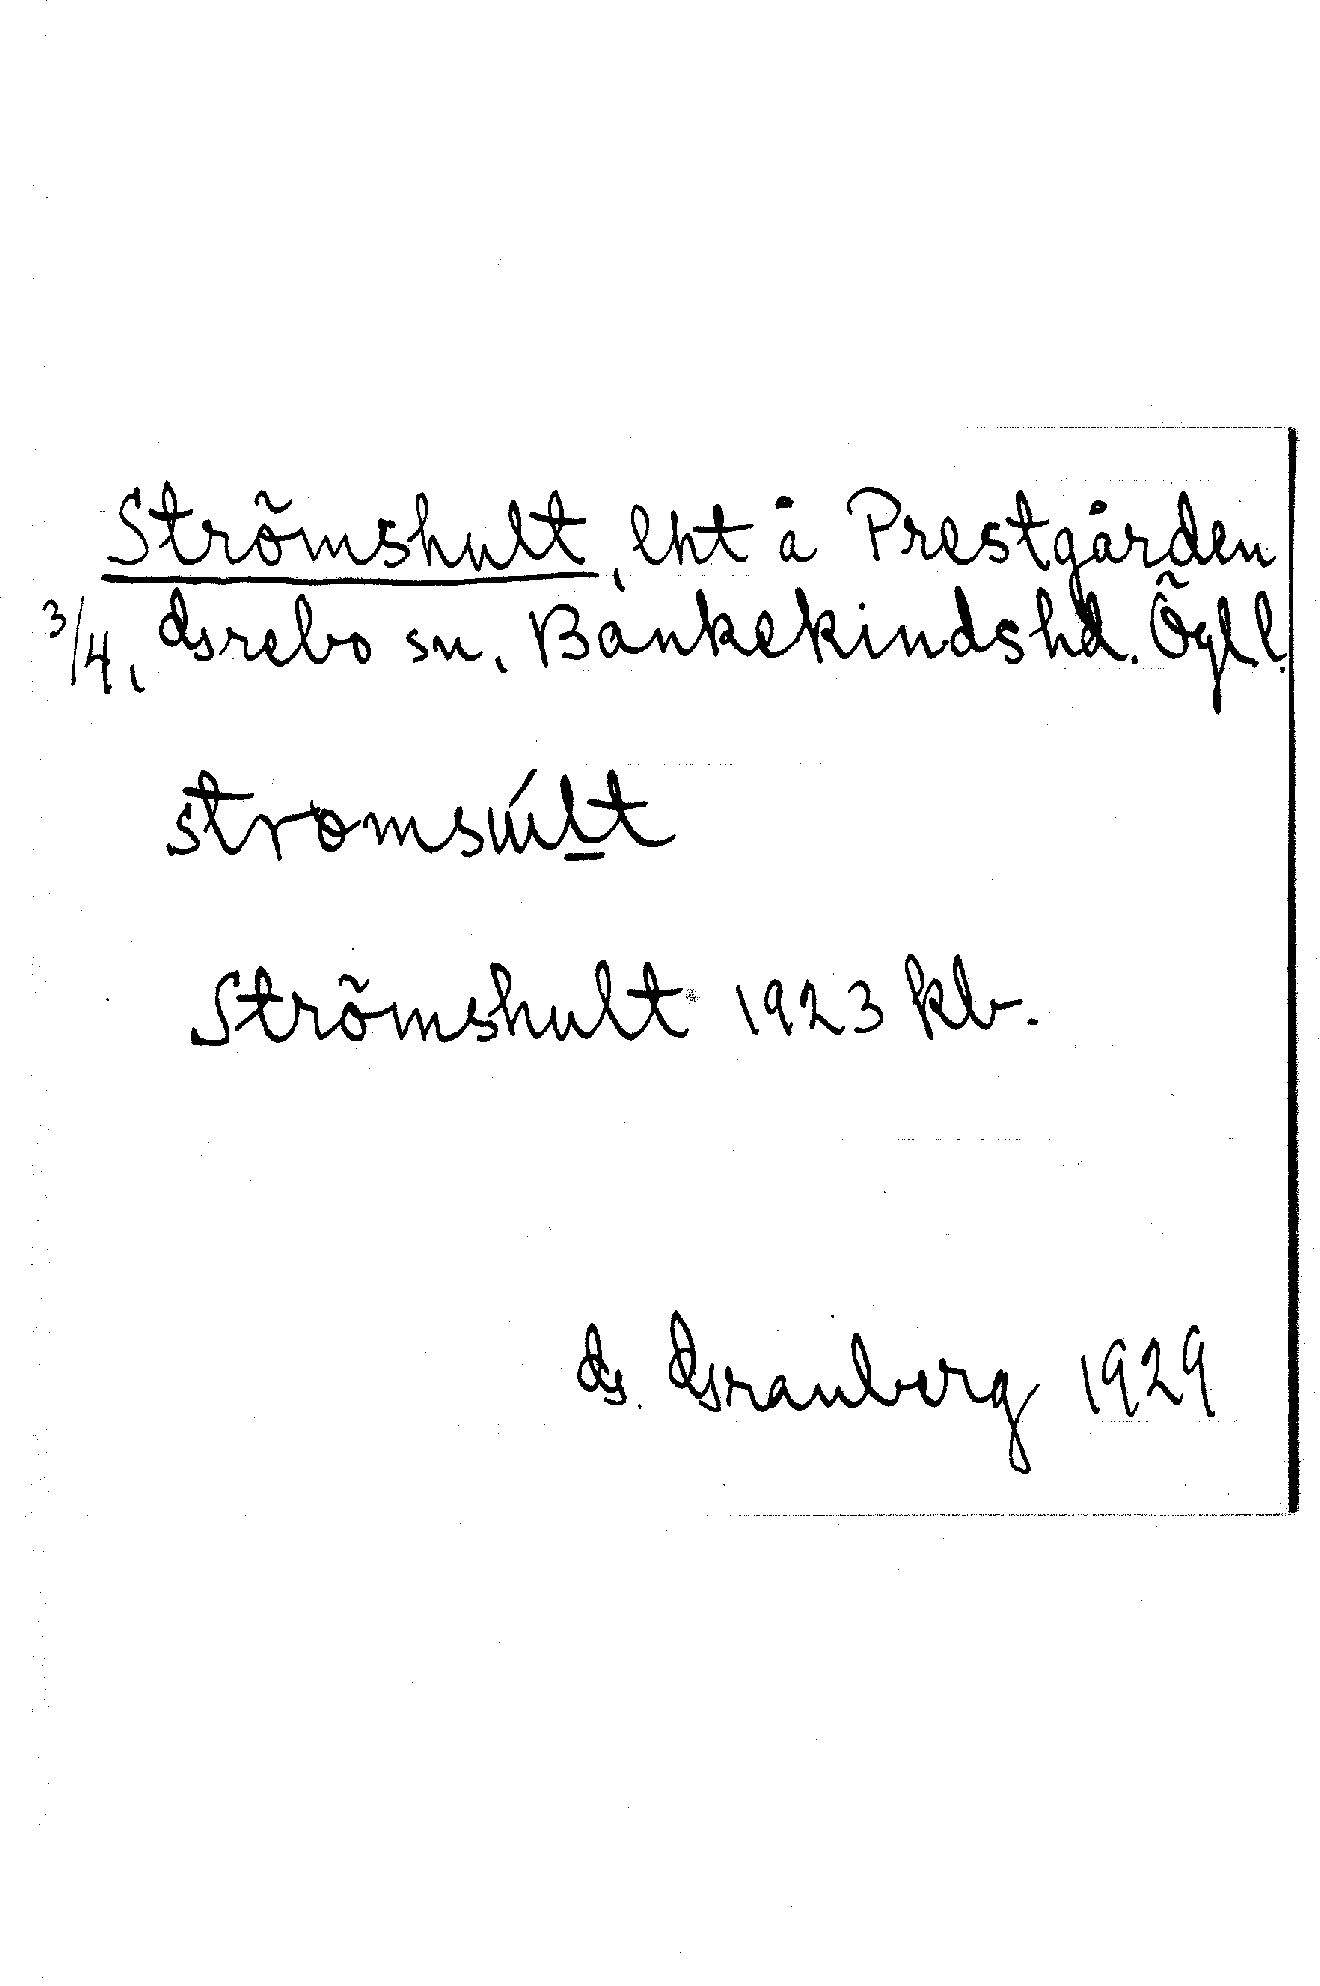 Strömshult, lht å Prestgården
3/4, Grebo sn, Bankekindshd. Ögll.
strømsúlt
Strömshult 1923 kb.
G. Granberg 1929